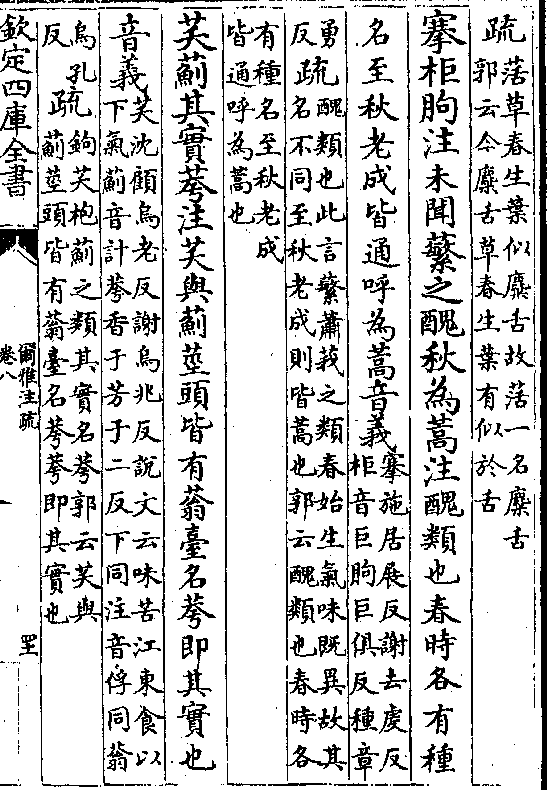 疏
菭草春生葉似麋舌故菭一名麋舌
郭云今麋舌草春生葉有似於舌
搴柜朐注未聞蘩之醜秋為蒿注醜類也春時各有種
名至秋老成皆通呼為蒿音義
搴施居展反謝去虔反
柜音巨朐巨俱反種章
勇
反
疏
醜類也此言蘩蕭莪之類春始生氣味既異故其
名不同至秋老成則皆蒿也郭云醜類也春時各
有種名至秋老成
皆通呼為蒿也
芺薊其實荂注芺與薊莖頭皆有蓊臺名荂荂即其實也
音義
芺沈顧烏老反謝烏兆反說文云味苦江東食以
下氣薊音計荂香于芳于二反下同注音俘同蓊
烏孔
反
疏
鉤芺枹薊之類其實名荂郭云芺與
薊莖頭皆有蓊臺名荂荂即其實也
欽定四庫全書
爾雅注疏
卷八